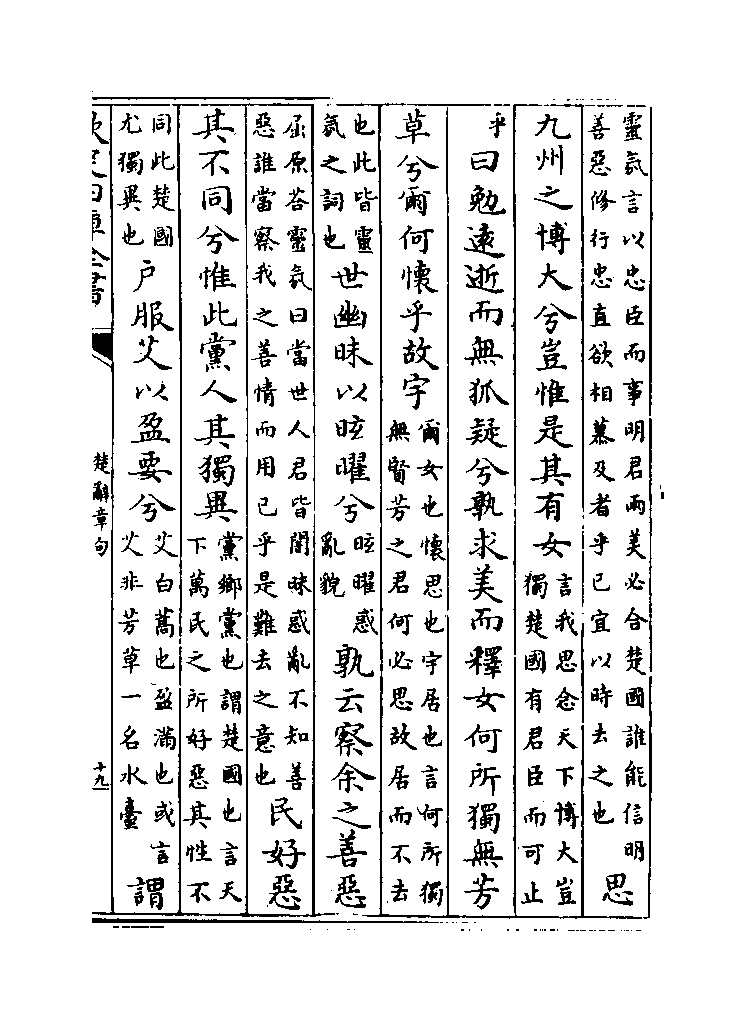 靈氛言以忠臣而事明君兩美必合楚國誰能信明
善惡修行忠直欲相慕及者乎已宜以時去之也
思
九州之博大兮豈惟是其有女
言我思念天下博大豈
獨楚國有君臣而可止
乎
曰勉遠逝而無狐疑兮孰求美而釋女何所獨無芳
草兮爾何懷乎故宇
爾女也懷思也宇居也言何所獨
無賢芳之君何必思故居而不去
也此皆靈
氛之詞也
世幽昧以眩曜兮
眩曜惑
亂貌
孰云察余之善惡
屈原答靈氛曰當世人君皆闇昧惑亂不知善
惡誰當察我之善情而用已乎是難去之意也
民好惡
其不同兮惟此黨人其獨異
黨鄉黨也謂楚國也言天
下萬民之所好惡其性不
同此楚國
尤獨異也
户服艾以盈要兮
艾白蒿也盈滿也或言
艾非芳草一名水臺
謂
欽定四庫全書
楚辭章句
十九